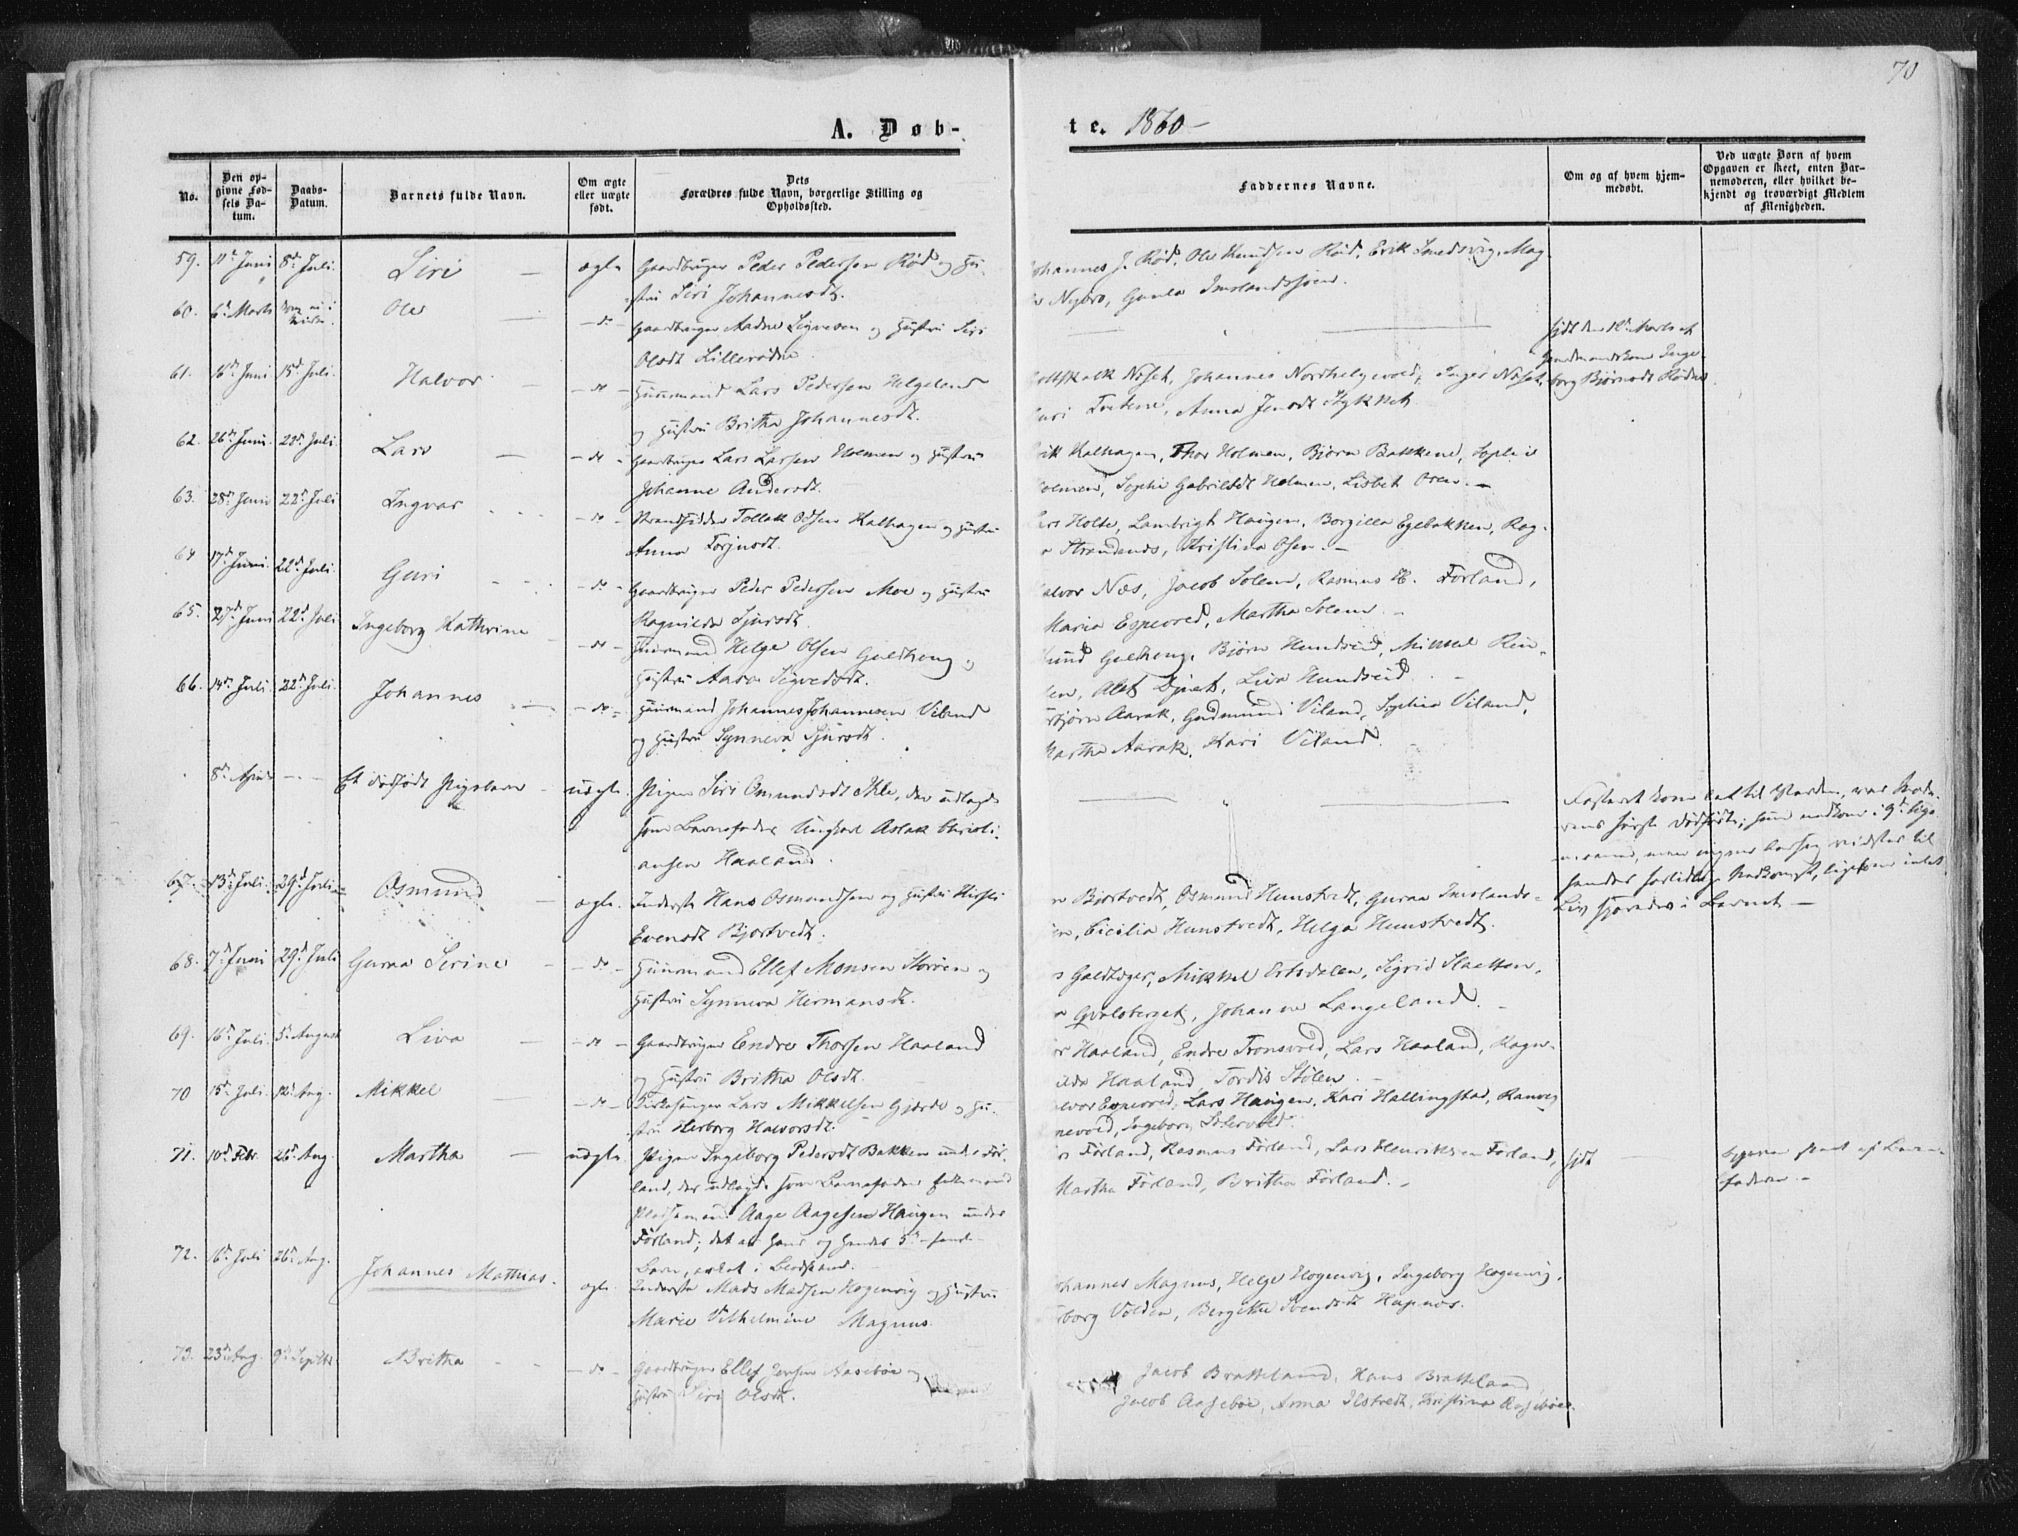 70
A. Døb-
te. 1860-
No.
Den op-
givne Fød-
sels Da-
tum.
Daabs-
Datum.
Barnets fulde Navn.
Om ægte
eller uægte
født.
Dets
Forældres fulde Navn, borgerlige Stilling og
Opholdssted.
Faddernes Navne.
Om og af hvem hjem-
medøbt.
Ved uægte Børn af hvem
Opgaven er skeet, enten Bar-
nemoderen, eller hvilket be-
kjendt og troværdigt Medlem
af Menigheden.
59. 11te Juni 8de Juli. Siri - ægte Gaardbruger Peder Pedersen Rød og Hu-
stru Siri Johannesdt.
Johannes J. Rød, Ole Knudsen Rød, Erik Smedsvig, Mag-
Nybro, Gunla Imslandssjøen.
60. 6te Marts Ole - do - Gaardbruger Aadne Sigvesen og Hustru Siri
Olsdt Lillerødne.
hjdt den 10de Marts af
Gaardmandskone Inge-
borg Bjørnsdt Rødne.
61. 16de Juni 15de Juli. Halvor - do - Huusmand Lars Pedersen Helgeland
og Hustru Britha Johannesdt.
Gottskalk Næset, Johannes Nordhelgevold, Inger Næset,
Guri Tvetene, Anna Jensdt Stykket
62. 26de Juni. 22de Juli Lars - do - Gaardbruger Lars Larsen Holmen og Hustru
Johanne Andersdt.
Erik Kalhagen, Thor Holmen, Bjørn Bakkene, Sophie
Holmen, Sophie Gabrielsdt Holmen, Lisbet Oren. -
63. 28de Juni 22de Juli Ingvar - do - Strandsidder Tollak Olsen Kalhagen og Hustru
Anna Torjusdt.
Lars Holte, Lambrigt Haugen, Borgilla Egebakken, Rag-
Strandends, Kristina Osen. -
64 17de Juni. 22de Juli. Guri - do - Gaardbruger Peder Pedersen Moe og Hustru
Ragnilda Sjursdt.
Halvor Næs, Jacob Solem, Rasmus H. Førland,
Maria Espevold, Martha Solem. -
65. 27de Juni 22de Juli Ingeborg Kathrine - do - Huusmand Helge Olsen Guldheng og
Hustru Aasa Sigvedsdt.
Guldheng, Bjørn Hundseid, Mikkel
Liva Hundseid -
66. 14de Juli. 22de Juli. Johannes - do - Huusmand Johannes Johannesen Viland
og Hustru Synneva Sjursdt.
Torbjørn Aarak, Gudmund Viland, Sophia Viland,
Martha Aarak, Kari Viland.
8de April - - Et dødfødt Pigebarn - uægte. Pigen Siri Osmundsdt Øle, der udlagde
som Barnefader Ungkarl Aslak Christi-
ansen Haaland.
Fosteret kom let til Verden, var Mode-
rens første dødfødte;
Liv sporedes i Barnet -
67. 13de Juli. 29de Juli Osmund ægte. Inderste Hans Osmundsen og Hustru Kirsti
Evensdt Bjortvedt.
Bjortvedt, Osmund Hunstvedt, Guroa Imslands-
Cicilia Hunstvedt, Helga Hunstvedt.
68. 7de Juni 29de Juli Guroa Serine - do - Huusmand Ellef Monsen Storøen og
Hustru Synneva Hermansdt.
Guldteger, Mikkel Ertsdalen, Sigrid Slaetten,
Qvalsberget, Johanne Langeland. -
69. 16de Juli. 5te August Liva - do - Gaardbruger Endre Thorsen Haaland
og Hustru Britha Olsdt.
Haaland, Endre Tronsvold, Lars Haaland, Ragn-
ilda Haaland, Tordis Stølen. -
70 15de Juli. 12te Aug. Mikkel - do - Kirkesanger Lars Mikkelsen Gjerde og Hu-
stru Herborg Halvorsdt.
Halvor Espevold, Lars Haugen, Kari Hallingstad, Ranveg
nevold, Ingeborg Søtervold.
71. 10de Febr. 26de Aug. Martha - uægte. Pigen Ingeborg Pedersdt Bakken under Før-
land, der udlagde som Barnefader
Pladsemand Aage Aagesen Haugen under
Førland; det er hans og hendes 5te
Barn, avlet i Blodskam.
Førland, Rasmus Førland, Lars Henriksen Førland,
Martha Førland, Britha Førland. -
hjdt -
Opgaven skeet af Barne-
faderen -
72. 16de Juli 26de Aug. Johannes Mathias. ægte. Inderste Mads Madsen Hogenvig og Hustru
Marie Vilhelmine Magnus.
Johannes Magnus, Helge Hogenvig, Ingeborg Hogenvig,
borg Volden, Bergitte Svendsdt Hapnes.
73. 23de Aug. 9de Septbr Britha - do - Gaardbruger Ellef Jensen Aasebøe og
Hustru Siri Olsdt.
Jacob Bratteland, Hans Bratteland,
Jacob Aasebøe, Anna Ilstvedt, Kristina Aasebøe.